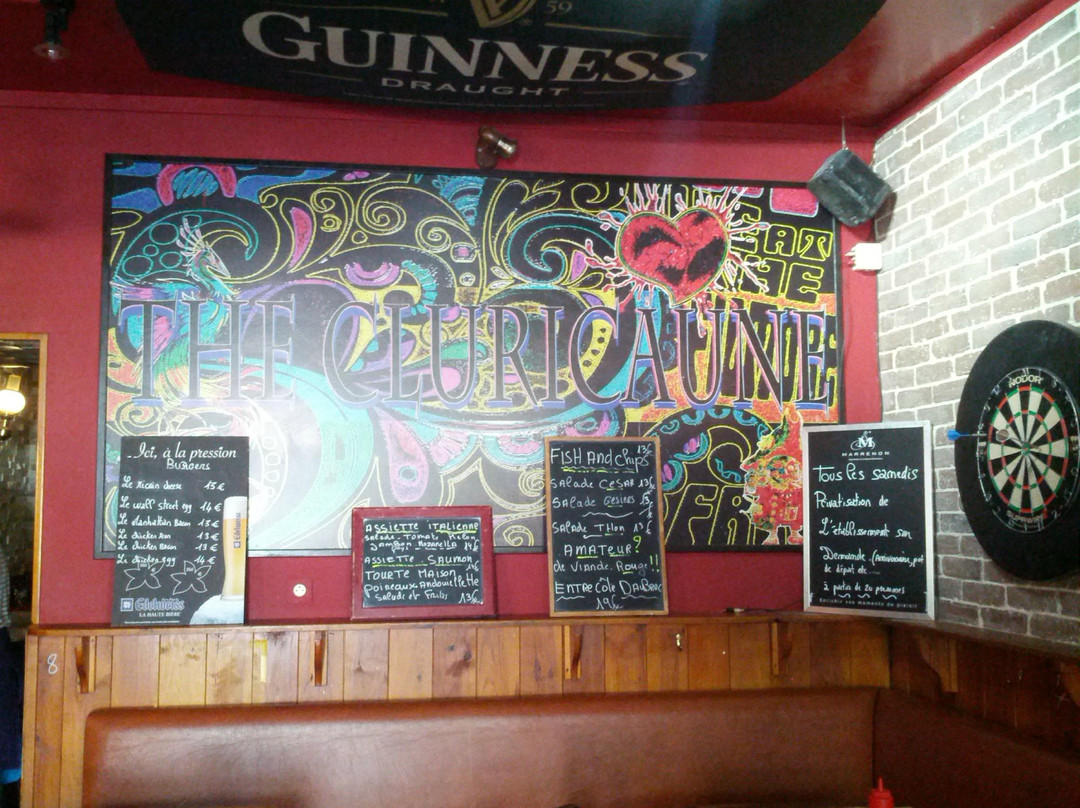 59
GUINNESS
DRAUGHT
EAT
THE
THE CLURICAUNE
Ici, à la pression
Burgers
Le Ricain cheese 13€
Le wall street egg 14€
Le Manhattan Bacon 13€
Le chicken 13€
Le chicken Bacon 13€
Le chicken egg 14€
Edelweiss
LA HAUTE BIÈRE
Edelweiss
ASSIETTE ITALIENNE
Salade Tomate Melon
Jambon Mozarella 14€
ASSIETTE SAUMON
TOURTE MAISON
Poireaux Andouillette
Salade et Frites 13€
FISH And chips 13€
Salade CESAR 13€
Salade Gésiers
Salade Thon 13€
AMATEUR?
de Viande Rouge!!
ENTRECôte D'Aubrac
19€
M
MARRENON
Tous les samedis
Privatisation de
L'établissement sur
Demande (Anniversaire, pot
de départ etc...
à partir de 20 personnes
NODOR
8